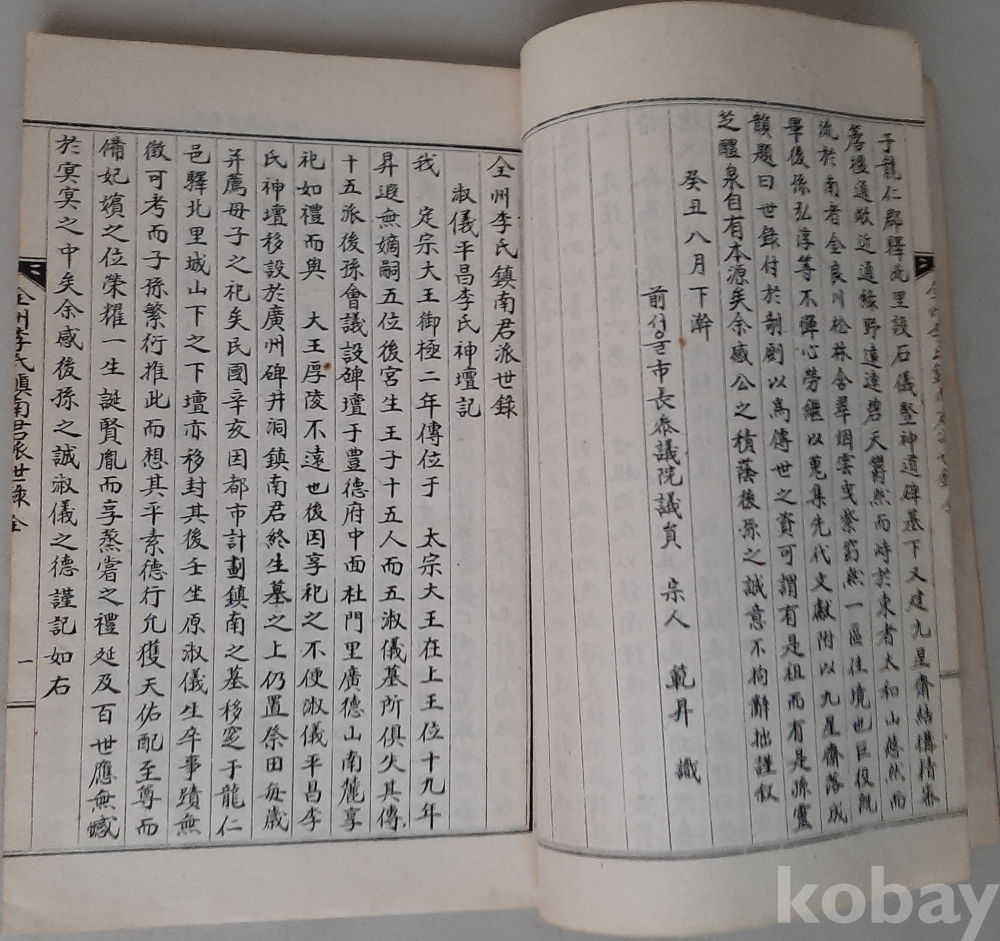 子龍仁郡驛北里設石儀竪神道碑墓下又建九星齋結構精緻
蒼後通敞近通綠野遠連碧天鬱然而峙於東者太和山悠然而
流於南者金良川松林含翠烟雲曳紫窈然一區佳境也臣役旣
畢後孫弘淳等不憚心勞繼以蒐集先代文獻附以九星齋落成
韻題曰世錄付於剞劂以爲傳世之資可謂有是祖而有是孫靈
芝醴泉自有本源矣余感公之積蔭後孫之誠意不拘辭拙謹叙
癸丑八月下澣
前서울市長叅議院議員 宗人 範昇 識
全州李氏鎮南君派世錄
淑儀平昌李氏神壇記
我 定宗大王御極二年傳位于 太宗大王在上王位十九年
昇遐無嫡嗣五位後宮生王子十五人而五淑儀墓所俱失其傳
十五派後孫會議設碑壇于豊德府中面杜門里廣德山南麓享
祀如禮而與 大王厚陵不遠也後因享祀之不便淑儀平昌李
氏神壇移設於廣州碑井洞鎮南君終生墓之上仍置祭田每歲
并薦母子之祀矣民國辛亥因都市計劃鎮南之墓移窆于龍仁
邑驛北里城山下之下壇亦移封其後壬坐原淑儀生卒事蹟無
徵可考而子孫繁衍推此而想其平素德行允獲天佑配至尊而
備妃嬪之位榮耀一生誕賢胤而享蒸嘗之禮延及百世應無憾
於冥冥之中矣余感後孫之誠淑儀之德謹記如右
全州李氏鎮南君派世錄 全
一
kobay